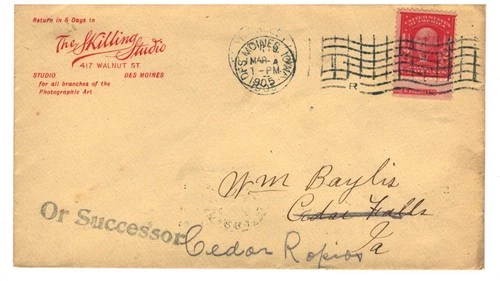 Return in 5 Days to
The Skilling Studio
417 WALNUT ST.
STUDIO DES MOINES
for all branches of the
Photographic Art
DES MOINES, IOWA
MAR
1-PM
1905
R
Wm Baylis
Cedar Falls
Ia
Or Successor
Cedar Rapids